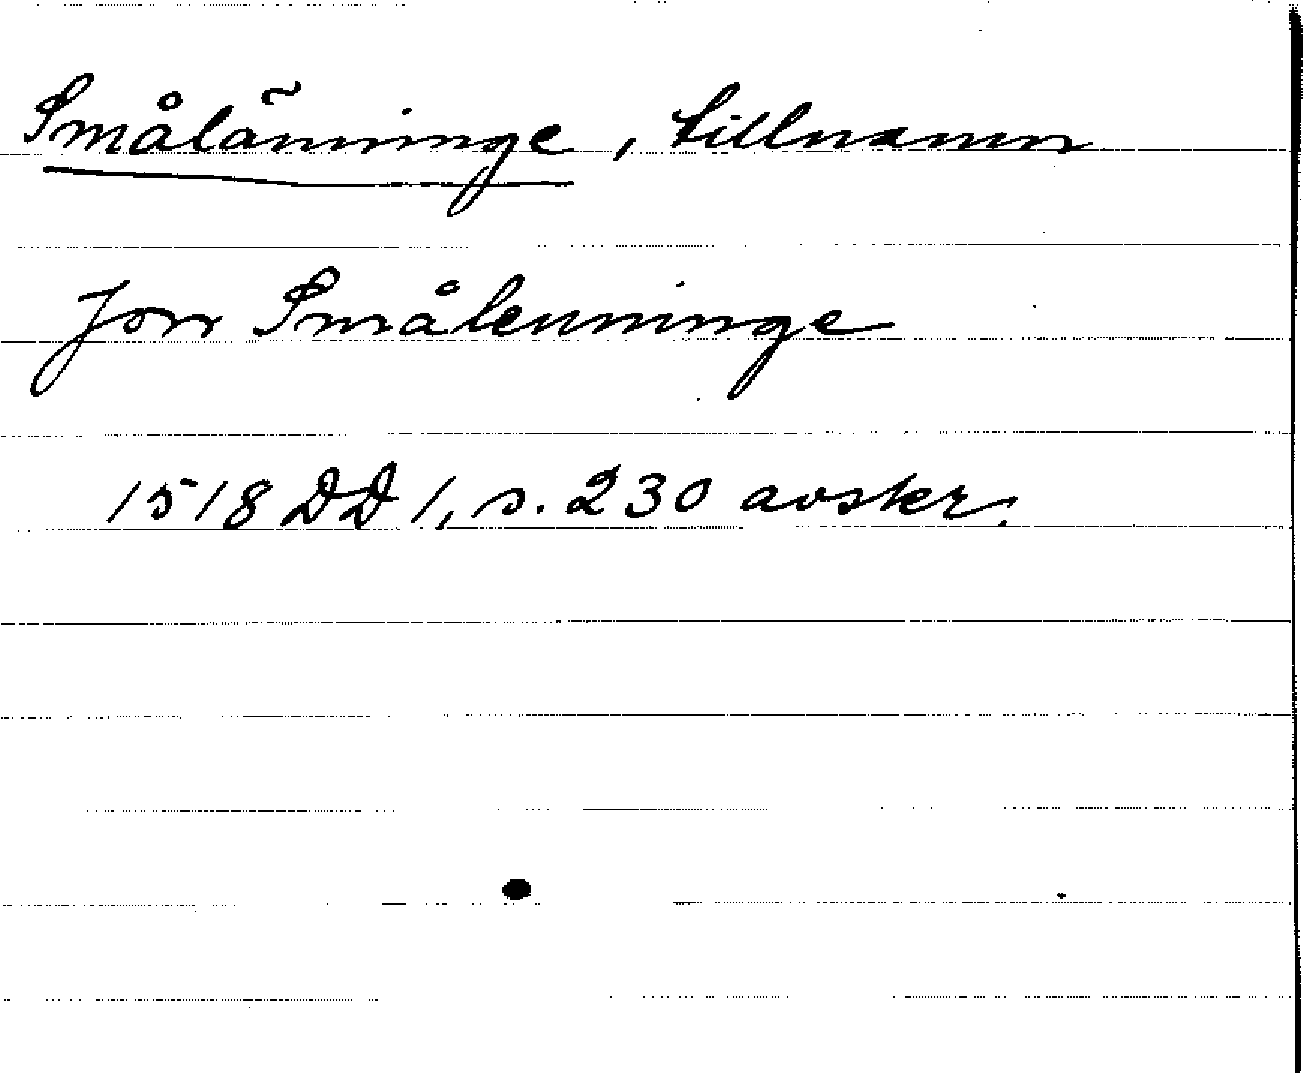 Smålänninge, tillnamn
Jon Smålenninge
1518 DD 1, s. 230 avskr.